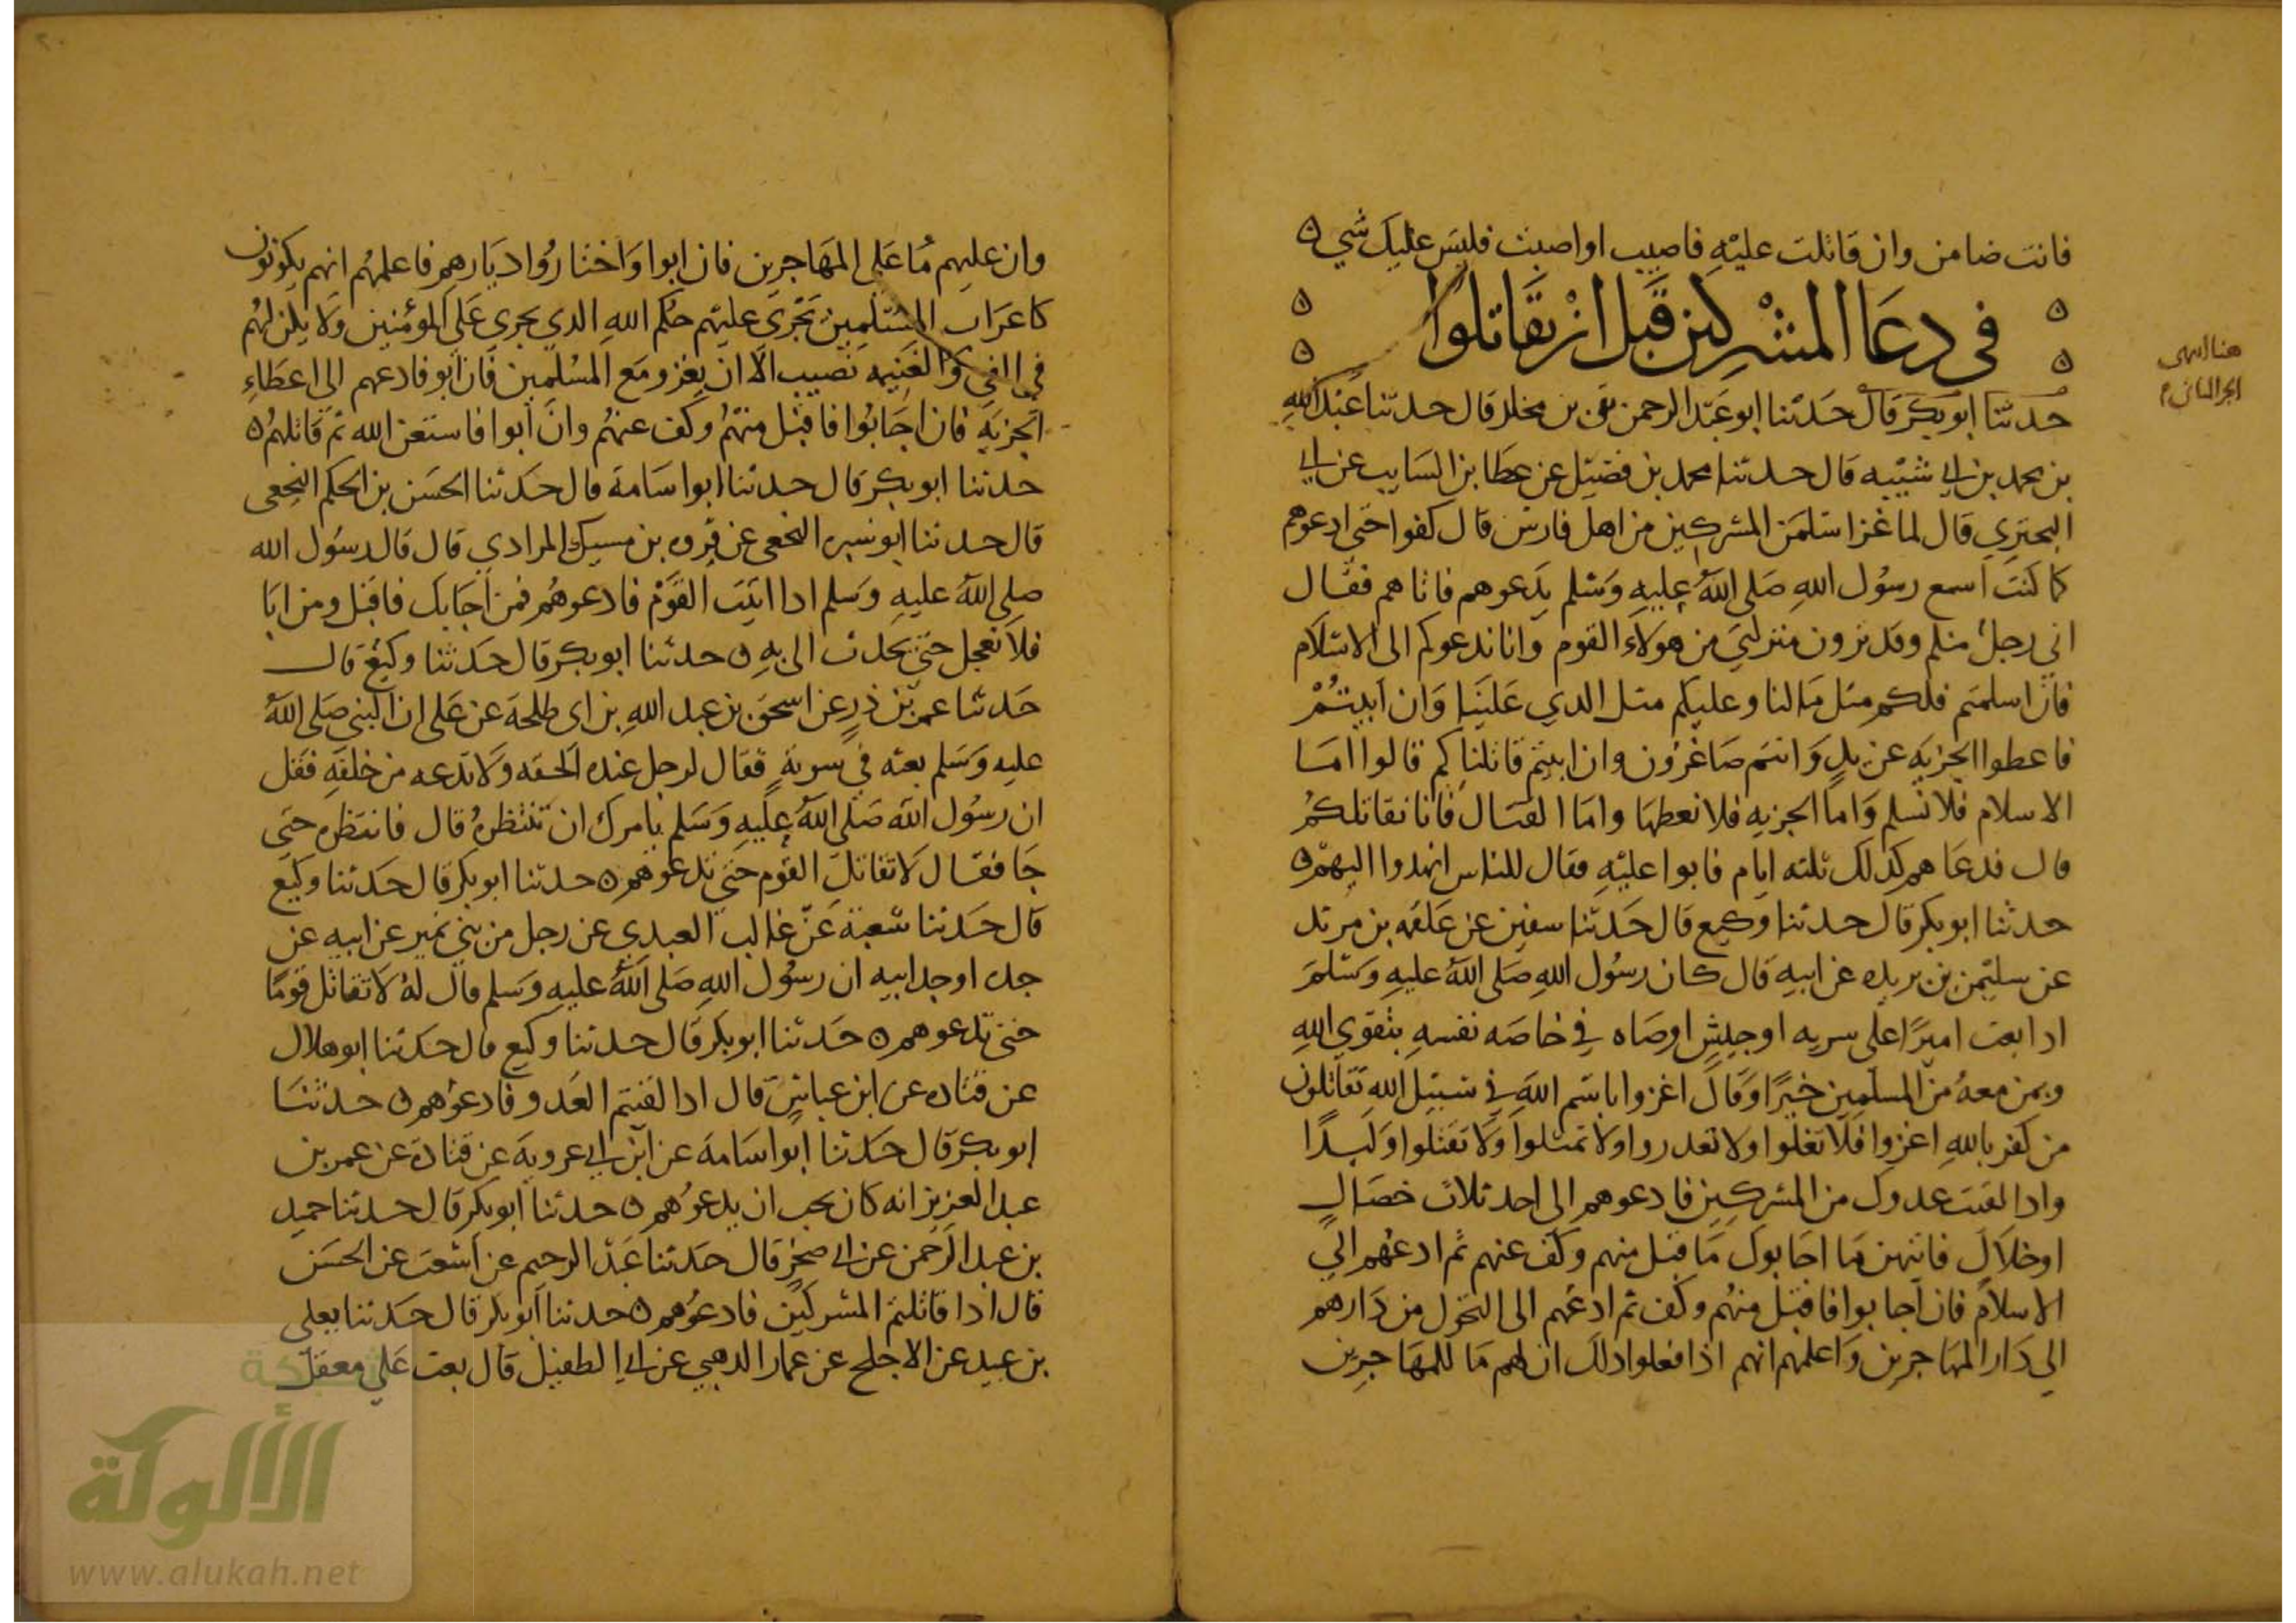 فانت ضامن وان قاتلت عليه فاصيب او اصبت فليس عليك شي ه
في دعا المشركين قبل ان يقاتلوا
حدثنا ابو بكر قال حدثنا ابو عبد الرحمن بقي بن مخلد قال حدثنا عبد الله
بن محمد بن ابي شيبه قال حدثنا محمد بن فضيل عن عطا بن السايب عن ابي
البختري قال لما غزا سلمن المشركين من اهل فارس قال كفوا حتى ادعوهم
كما كنت اسمع رسول الله صلى الله عليه وسلم يدعوهم فاتاهم فقال
اني رجل منكم وقد ترون منزلتي من هولاء القوم وانا ندعوكم الى الاسلام
فان اسلمتم فلكم مثل ما لنا وعليكم مثل الذي علينا وان ابيتم
فاعطوا الجزيه عن يد وانتم صاغرون وان ابيتم قاتلناكم قالوا اما
الاسلام فلا نسلم واما الجزيه فلا نعطها واما القتال فانا نقاتلكم
قال فدعاهم كذلك ثلثه ايام فابوا عليه فقال للناس انهدوا اليهم ه
حدثنا ابو بكر قال حدثنا وكيع قال حدثنا سفين عن علقمه بن مرثد
عن سليمن بن بريده عن ابيه قال كان رسول الله صلى الله عليه وسلم
اذا بعث اميرا على سريه او جيش اوصاه في خاصه نفسه بتقوي الله
وبمن معه من المسلمين خيرا وقال اغزوا باسم الله في سبيل الله تقاتلون
من كفر بالله اغزوا فلا تغلوا ولا تغدروا ولا تمثلوا ولا تقتلوا وليدا
واذا لقيت عدوك من المشركين فادعوهم الى احد ثلاث خصال
او خلال فايتهن ما اجابوك ما قبل منهم وكف عنهم ثم ادعهم الي
الاسلام فان اجابوا فاقبل منهم وكف ثم ادعهم الى التحول من دارهم
الي دار المهاجرين واعلمهم انهم اذا فعلوا ذلك ان لهم ما للمهاجرين
هنا انتهى
الجز الثاني
وان عليهم ما على المهاجرين فان ابوا واختاروا ديارهم فاعلمهم انهم يكونون
كاعراب المسلمين تجري عليهم حكم الله الذي يجري على المؤمنين ولا يكن لهم
في الفي والغنيه نصيب الا ان يغزو مع المسلمين فان ابو فادعهم الي اعطاء
الجزيه فان اجابوا فاقبل منهم وكف عنهم وان ابوا فاستعن الله ثم قاتلهم ه
حدثنا ابو بكر قال حدثنا ابو اسامة قال حدثنا الحسن بن الحكم النخعي
قال حدثنا ابو سبره النخعي عن فروه بن مسيك المرادي قال قال رسول الله
صلى الله عليه وسلم اذا اتيت القوم فادعوهم فمن اجابك فاقبل ومن ابا
فلا تعجل حتى تحدث الي به ه حدثنا ابو بكر قال حدثنا وكيع قال
حدثنا عمر بن ذر عن اسحق بن عبد الله بن ابي طلحة عن علي ان النبي صلى الله
عليه وسلم بعثه في سرية فقال لرجل عنده الحقه ولا تدعه من خلفه فقل
ان رسول الله صلى الله عليه وسلم يامرك ان تنتظره قال فانتظره حتي
جا فقال لا تقاتل القوم حتي تدعوهم ه حدثنا ابو بكر قال حدثنا وكيع
قال حدثنا شعبة عن غالب العبدي عن رجل من بني نمير عن ابيه عن
جده او جد ابيه ان رسول الله صلى الله عليه وسلم قال له لا تقاتل قوما
حتى تدعوهم ه حدثنا ابو بكر قال حدثنا وكيع قال حدثنا ابو هلال
عن قتاده عن ابن عباس قال اذا لقيتم العدو فادعوهم ه حدثنا
ابو بكر قال حدثنا ابو اسامة عن ابن ابي عروبة عن قتادة عن عمر بن
عبد العزيز انه كان يحب ان يدعوهم ه حدثنا ابو بكر قال حدثنا حميد
بن عبد الرحمن عن ابي صخر قال حدثنا عبد الرحيم عن اشعث عن الحسن
قال اذا قاتلتم المشركين فادعوهم ه حدثنا ابو بكر قال حدثنا يعلي
بن عبيد عن الاجلح عن عمار الدهني عن ابي الطفيل قال بعث علي معقل
شبكة
الألوكة
www.alukah.net
٢٠